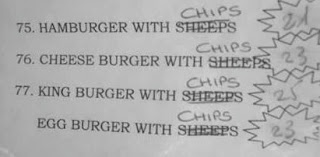 CHIPS
75. HAMBURGER WITH SHEEPS 21
CHIPS
76. CHEESE BURGER WITH SHEEPS 23
CHIPS
77. KING BURGER WITH SHEEPS 25
CHIPS
EGG BURGER WITH SHEEPS 23